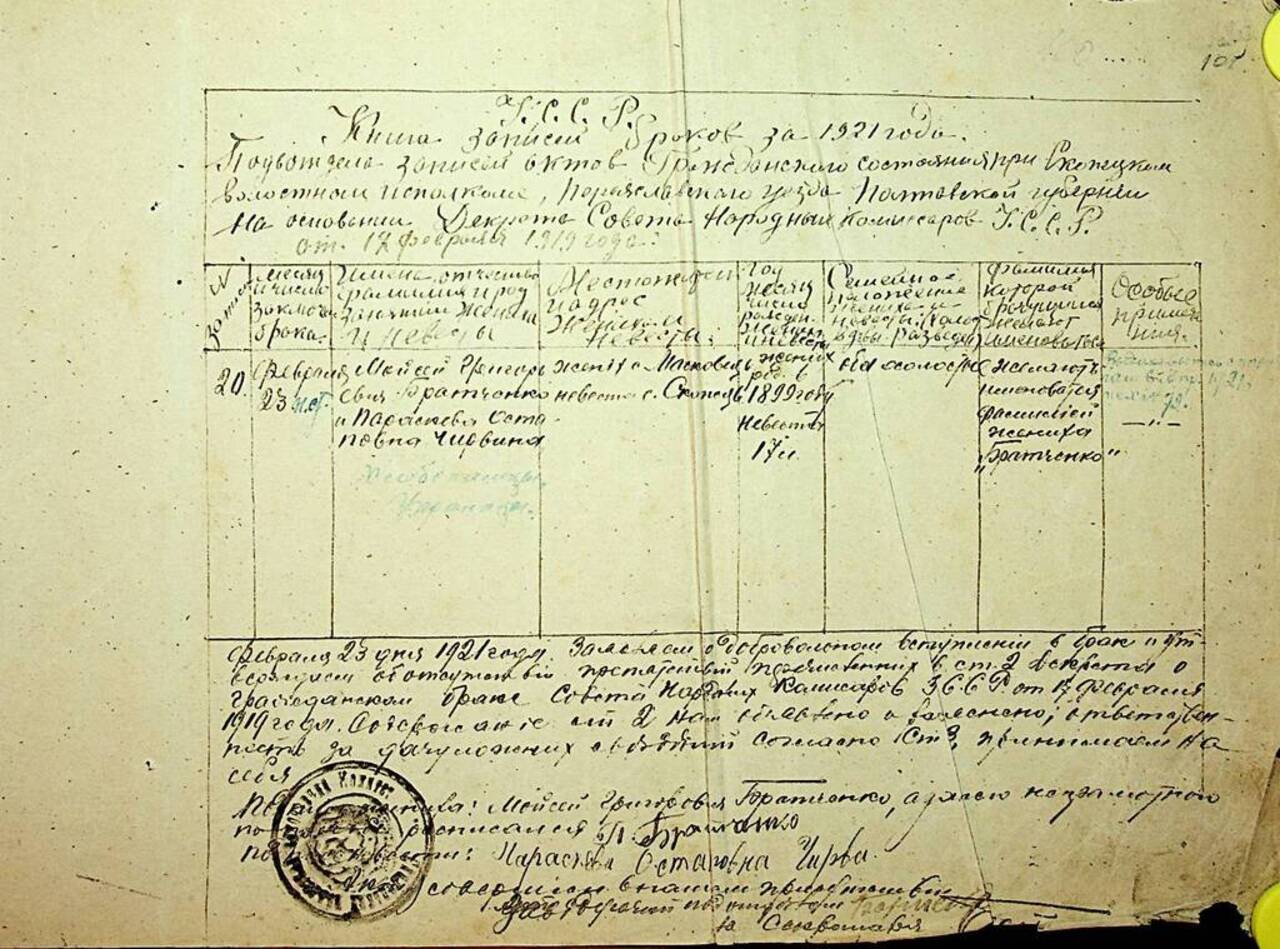 101
У.С.С.Р.
Книга записей браков за 1921 года.
Подвотдела записей актов Гражданского состояния при Скопецком
волостном исполкоме, Переяславского уезда Полтавской губернии
На основании Декрета Совета Народных комисаров У.С.С.Р.
от 17 февраля 1919 года.
N
Месяц и число заключен брака.
Имена, отчество фамилия и род занятий жениха и невесты
Местожител и адрес жениха и невесты.
Год месяц число рожден. жениха и невесты
Семейное положение жениха и невесты
фамилия которой брачущиеся желают именоваться
Особые примечания.
20.
Февраля
23 н.ст.
Мойсей Григорь
евич Братченко
и Параскева Оста
повна Чирвина
Хлебопашцы
Украинцы.
жених с.
невеста с. Скопцы
жених
род. в
1899 году
невеста
17 л.
оба холосты
желают
именоватся
фамилией
жениха
"Братченко"
— " —
Февраля 23 дня 1921 года. Заявляем о добровольном вступлении в брак и ут-
верждаем об отсутствий препятствий в ст. 2 декрета о
гражданском браке Совета Народних Комисаров У.С.С.Р. от 17 февраля
1919 года. Содержание ст. 2 нам объявлено и , ответствен-
ность за дачу ложних сведений согласно ст. 3, принимаем на
себя
жениха: Мойсей Григорович Братченко, а неграмотного
росписался Братченко
невести: Параскева Остаповна Чирва.
в нашем присутствии
Секретаря